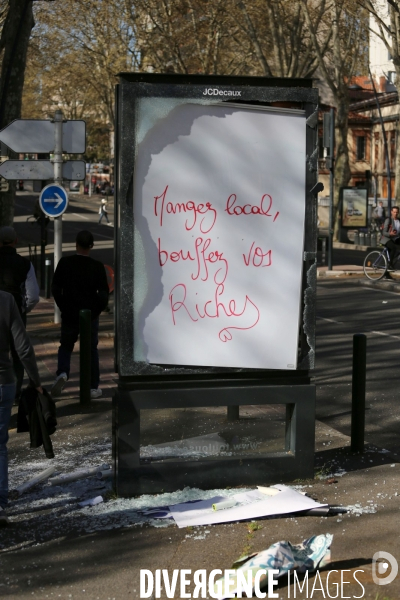 JCDecaux
Mangez local,
bouffez vos
Riches
DIVERGENCE IMAGES